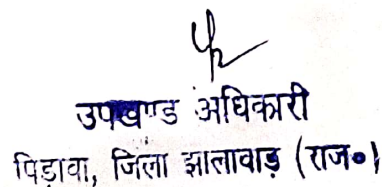 उपखण्ड अधिकारी
पिड़ावा, जिला झालावाड़ (राज०)